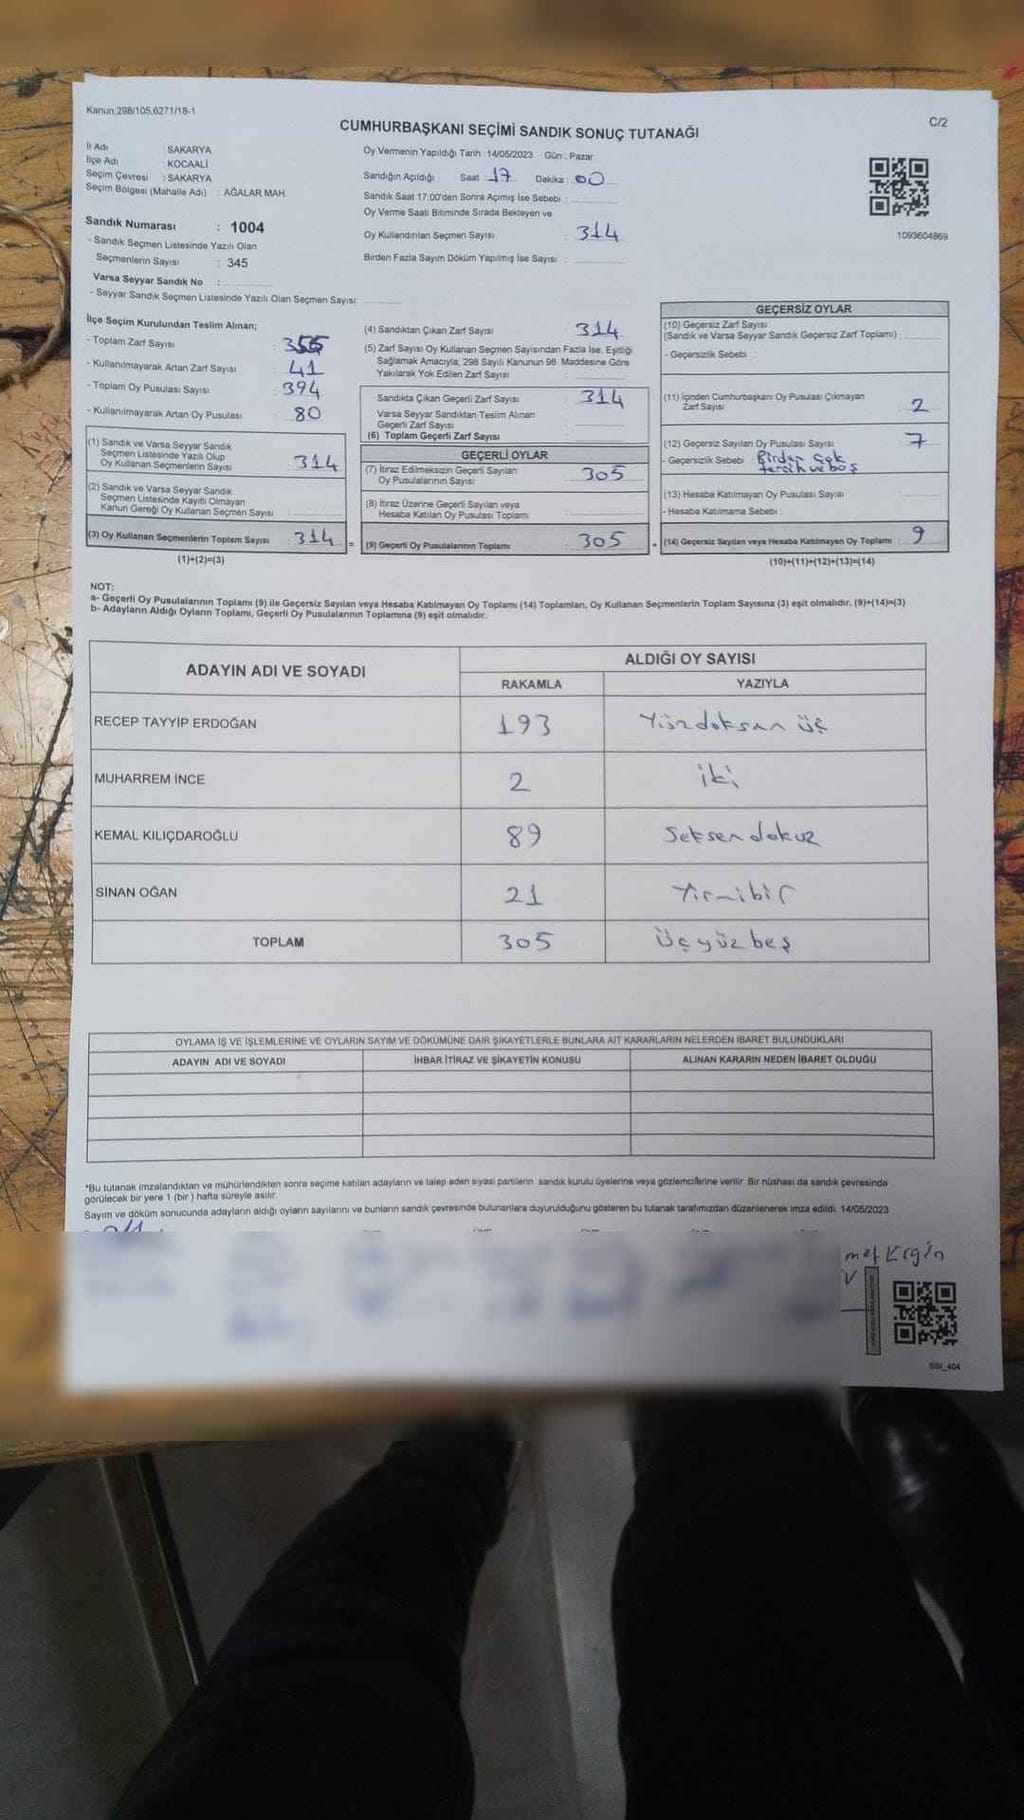 Kanun;298/105,6271/18-1
C/2
CUMHURBAŞKANI SEÇİMİ SANDIK SONUÇ TUTANAĞI
İl Adı : SAKARYA
İlçe Adı : KOCAALİ
Seçim Çevresi : SAKARYA
Seçim Bölgesi (Mahalle Adı) : AĞALAR MAH.
Oy Vermenin Yapıldığı Tarih : 14/05/2023 Gün : Pazar
Sandığın Açıldığı Saat 17 Dakika : 00
Sandık Saat 17:00'den Sonra Açılmış İse Sebebi :
Oy Verme Saati Bitiminde Sırada Bekleyen ve
Oy Kullandırılan Seçmen Sayısı : 314
Birden Fazla Sayım Döküm Yapılmış İse Sayısı :
1093604869
Sandık Numarası : 1004
- Sandık Seçmen Listesinde Yazılı Olan
Seçmenlerin Sayısı : 345
Varsa Seyyar Sandık No :
- Seyyar Sandık Seçmen Listesinde Yazılı Olan Seçmen Sayısı:
İlçe Seçim Kurulundan Teslim Alınan;
- Toplam Zarf Sayısı : 355
- Kullanılmayarak Artan Zarf Sayısı : 41
- Toplam Oy Pusulası Sayısı : 394
- Kullanılmayarak Artan Oy Pusulası : 80
(1) Sandık ve Varsa Seyyar Sandık
Seçmen Listesinde Yazılı Olup
Oy Kullanan Seçmenlerin Sayısı : 314
(2) Sandık ve Varsa Seyyar Sandık
Seçmen Listesinde Kayıtlı Olmayan
Kanun Gereği Oy Kullanan Seçmen Sayısı :
(3) Oy Kullanan Seçmenlerin Toplam Sayısı : 314 =
(1)+(2)=(3)
(4) Sandıktan Çıkan Zarf Sayısı : 314
(5) Zarf Sayısı Oy Kullanan Seçmen Sayısından Fazla İse, Eşitliği
Sağlamak Amacıyla; 298 Sayılı Kanunun 98. Maddesine Göre
Yakılarak Yok Edilen Zarf Sayısı :
Sandıkta Çıkan Geçerli Zarf Sayısı : 314
Varsa Seyyar Sandıktan Teslim Alınan
Geçerli Zarf Sayısı :
(6) Toplam Geçerli Zarf Sayısı :
GEÇERLİ OYLAR
(7) İtiraz Edilmeksizin Geçerli Sayılan
Oy Pusulalarının Sayısı : 305
(8) İtiraz Üzerine Geçerli Sayılan veya
Hesaba Katılan Oy Pusulası Toplamı :
(9) Geçerli Oy Pusulalarının Toplamı : 305 +
GEÇERSİZ OYLAR
(10) Geçersiz Zarf Sayısı
(Sandık ve Varsa Seyyar Sandık Geçersiz Zarf Toplamı) :
- Geçersizlik Sebebi :
(11) İçinden Cumhurbaşkanı Oy Pusulası Çıkmayan
Zarf Sayısı : 2
(12) Geçersiz Sayılan Oy Pusulası Sayısı : 7
- Geçersizlik Sebebi : Birden çok
tercih ve boş
(13) Hesaba Katılmayan Oy Pusulası Sayısı :
- Hesaba Katılmama Sebebi :
(14) Geçersiz Sayılan veya Hesaba Katılmayan Oy Toplamı : 9
(10)+(11)+(12)+(13)=(14)
NOT:
a- Geçerli Oy Pusulalarının Toplamı (9) ile Geçersiz Sayılan veya Hesaba Katılmayan Oy Toplamı (14) Toplamları, Oy Kullanan Seçmenlerin Toplam Sayısına (3) eşit olmalıdır. (9)+(14)=(3)
b- Adayların Aldığı Oyların Toplamı, Geçerli Oy Pusulalarının Toplamına (9) eşit olmalıdır.
ADAYIN ADI VE SOYADI
ALDIĞI OY SAYISI
RAKAMLA YAZIYLA
RECEP TAYYİP ERDOĞAN 193 Yüzdoksan üç
MUHARREM İNCE 2 iki
KEMAL KILIÇDAROĞLU 89 Seksen dokuz
SİNAN OĞAN 21 Yirmibir
TOPLAM 305 Üçyüz beş
OYLAMA İŞ VE İŞLEMLERİNE VE OYLARIN SAYIM VE DÖKÜMÜNE DAİR ŞİKAYETLERLE BUNLARA AİT KARARLARIN NELERDEN İBARET BULUNDUKLARI
ADAYIN ADI VE SOYADI İHBAR İTİRAZ VE ŞİKAYETİN KONUSU ALINAN KARARIN NEDEN İBARET OLDUĞU
*Bu tutanak imzalandıktan ve mühürlendikten sonra seçime katılan adayların ve talep eden siyasi partilerin sandık kurulu üyelerine veya gözlemcilerine verilir. Bir nüshası da sandık çevresinde
görülecek bir yere 1 (bir ) hafta süreyle asılır.
Sayım ve döküm sonucunda adayların aldığı oyların sayılarını ve bunların sandık çevresinde bulunanlara duyurulduğunu gösteren bu tutanak tarafımızdan düzenlenerek imza edildi. 14/05/2023
SSI_404